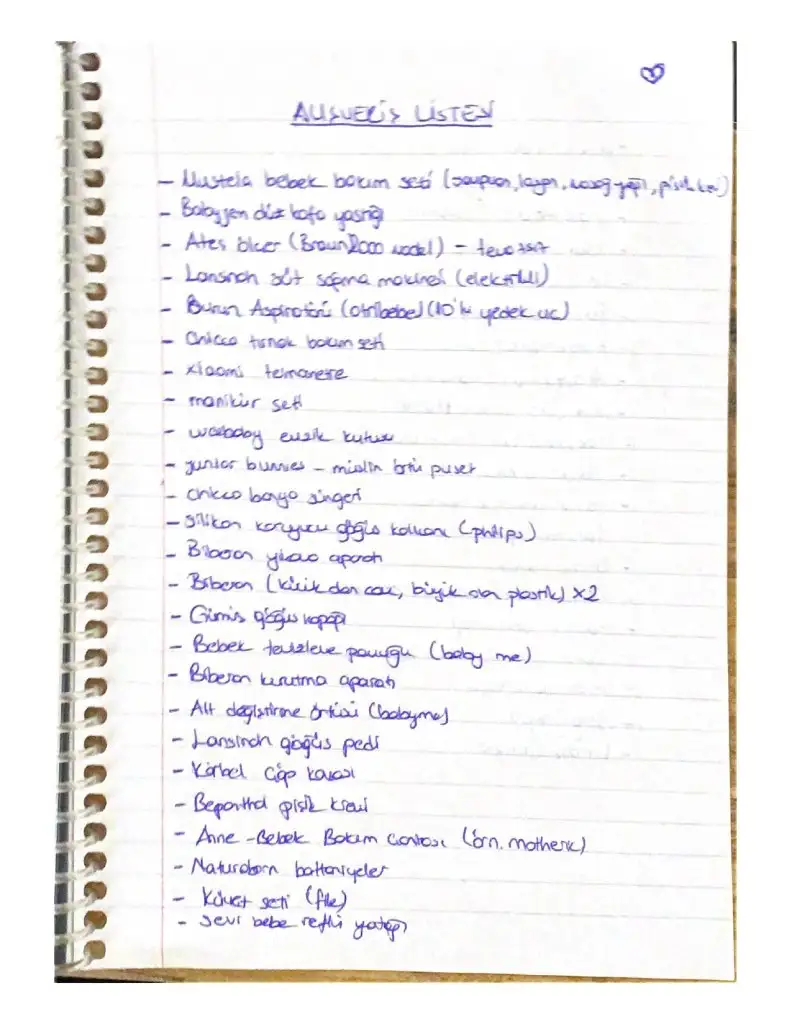 ALIŞVERİŞ LİSTESİ
- Mustela bebek bakım seti (şampuan, losyon, masaj yağı, pişik kre)
- Babyjem düz kafa yastığı
- Ateş ölçer (Braun 7000 model) -
- Lansinoh süt sağma makinesi (elektrikli)
- Burun Aspiratörü (otribebe) (10'lu yedek uç)
- Chicco tırnak bakım seti
- xiaomi termometre
- manikür seti
- weebaby emzik kutusu
- junior bunnies - müslin örtü puset
- chicco banyo süngeri
- Silikon koruyucu göğüs kalkanı (philips)
- Biberon yıkama aparatı
- Biberon (küçük olan cam, büyük olan plastik) x2
- Gümüş göğüs kapağı
- Bebek temizleme pamuğu (baby me)
- Biberon kurutma aparatı
- Alt değiştirme örtüsü (babyme)
- Lansinoh göğüs pedi
- Korbel çöp kovası
- Bepanthol pişik kremi
- Anne - Bebek Bakım Çantası (örn. motherk)
- Naturaborn battaniyeler
- Küvet seti (file)
- Sevi bebe reflü yatağı